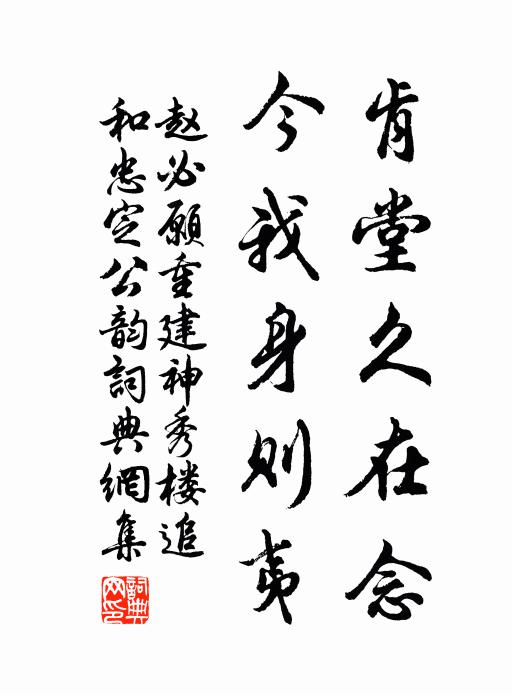 肯堂久在念
今我身则夷
赵必愿重建神秀楼追
和忠定公韵詞典網集
詞典网印